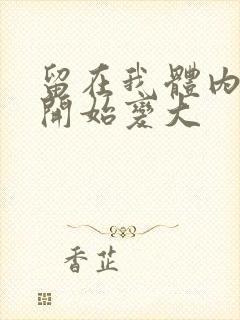 留在我體內
開始變大
香芷